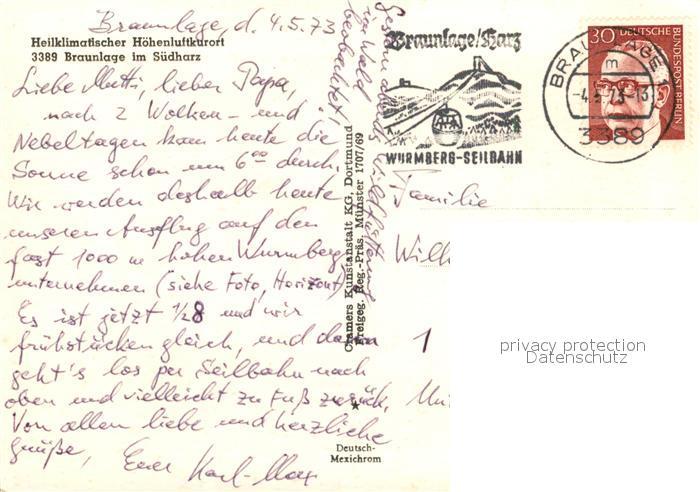 Braunlage, d. 4.5.73
Heilklimatischer Höhenluftkurort
3389 Braunlage im Südharz
Liebe Mutti, lieber Papa,
nach 2 Wolken- und
Nebeltagen kam heute die
Sonne schon um 6⁰⁰ durch.
Wir werden deshalb heute
unseren Ausflug auf den
fast 1000 m hohen Wurmberg
unternehmen (siehe Foto, Horizont).
Es ist jetzt ½8 und wir
frühstücken gleich, und dann
geht's los per Seilbahn nach
oben und vielleicht zu Fuß zurück.
Von allen liebe und herzliche
Grüße, Euer Karl-Max
Gestern abend Wildfütterung
im Wald
beobachtet,
Cramers Kunstanstalt KG, Dortmund
Freigeg. Reg.-Präs. Münster 1707/69
Deutsch-
Mexichrom
Braunlage/Harz
WURMBERG-SEILBAHN
BRAUNLAGE
m
-4.5.73-
3389
30 DEUTSCHE
BUNDESPOST BERLIN
Familie
Wilh
1
privacy protection
Datenschutz